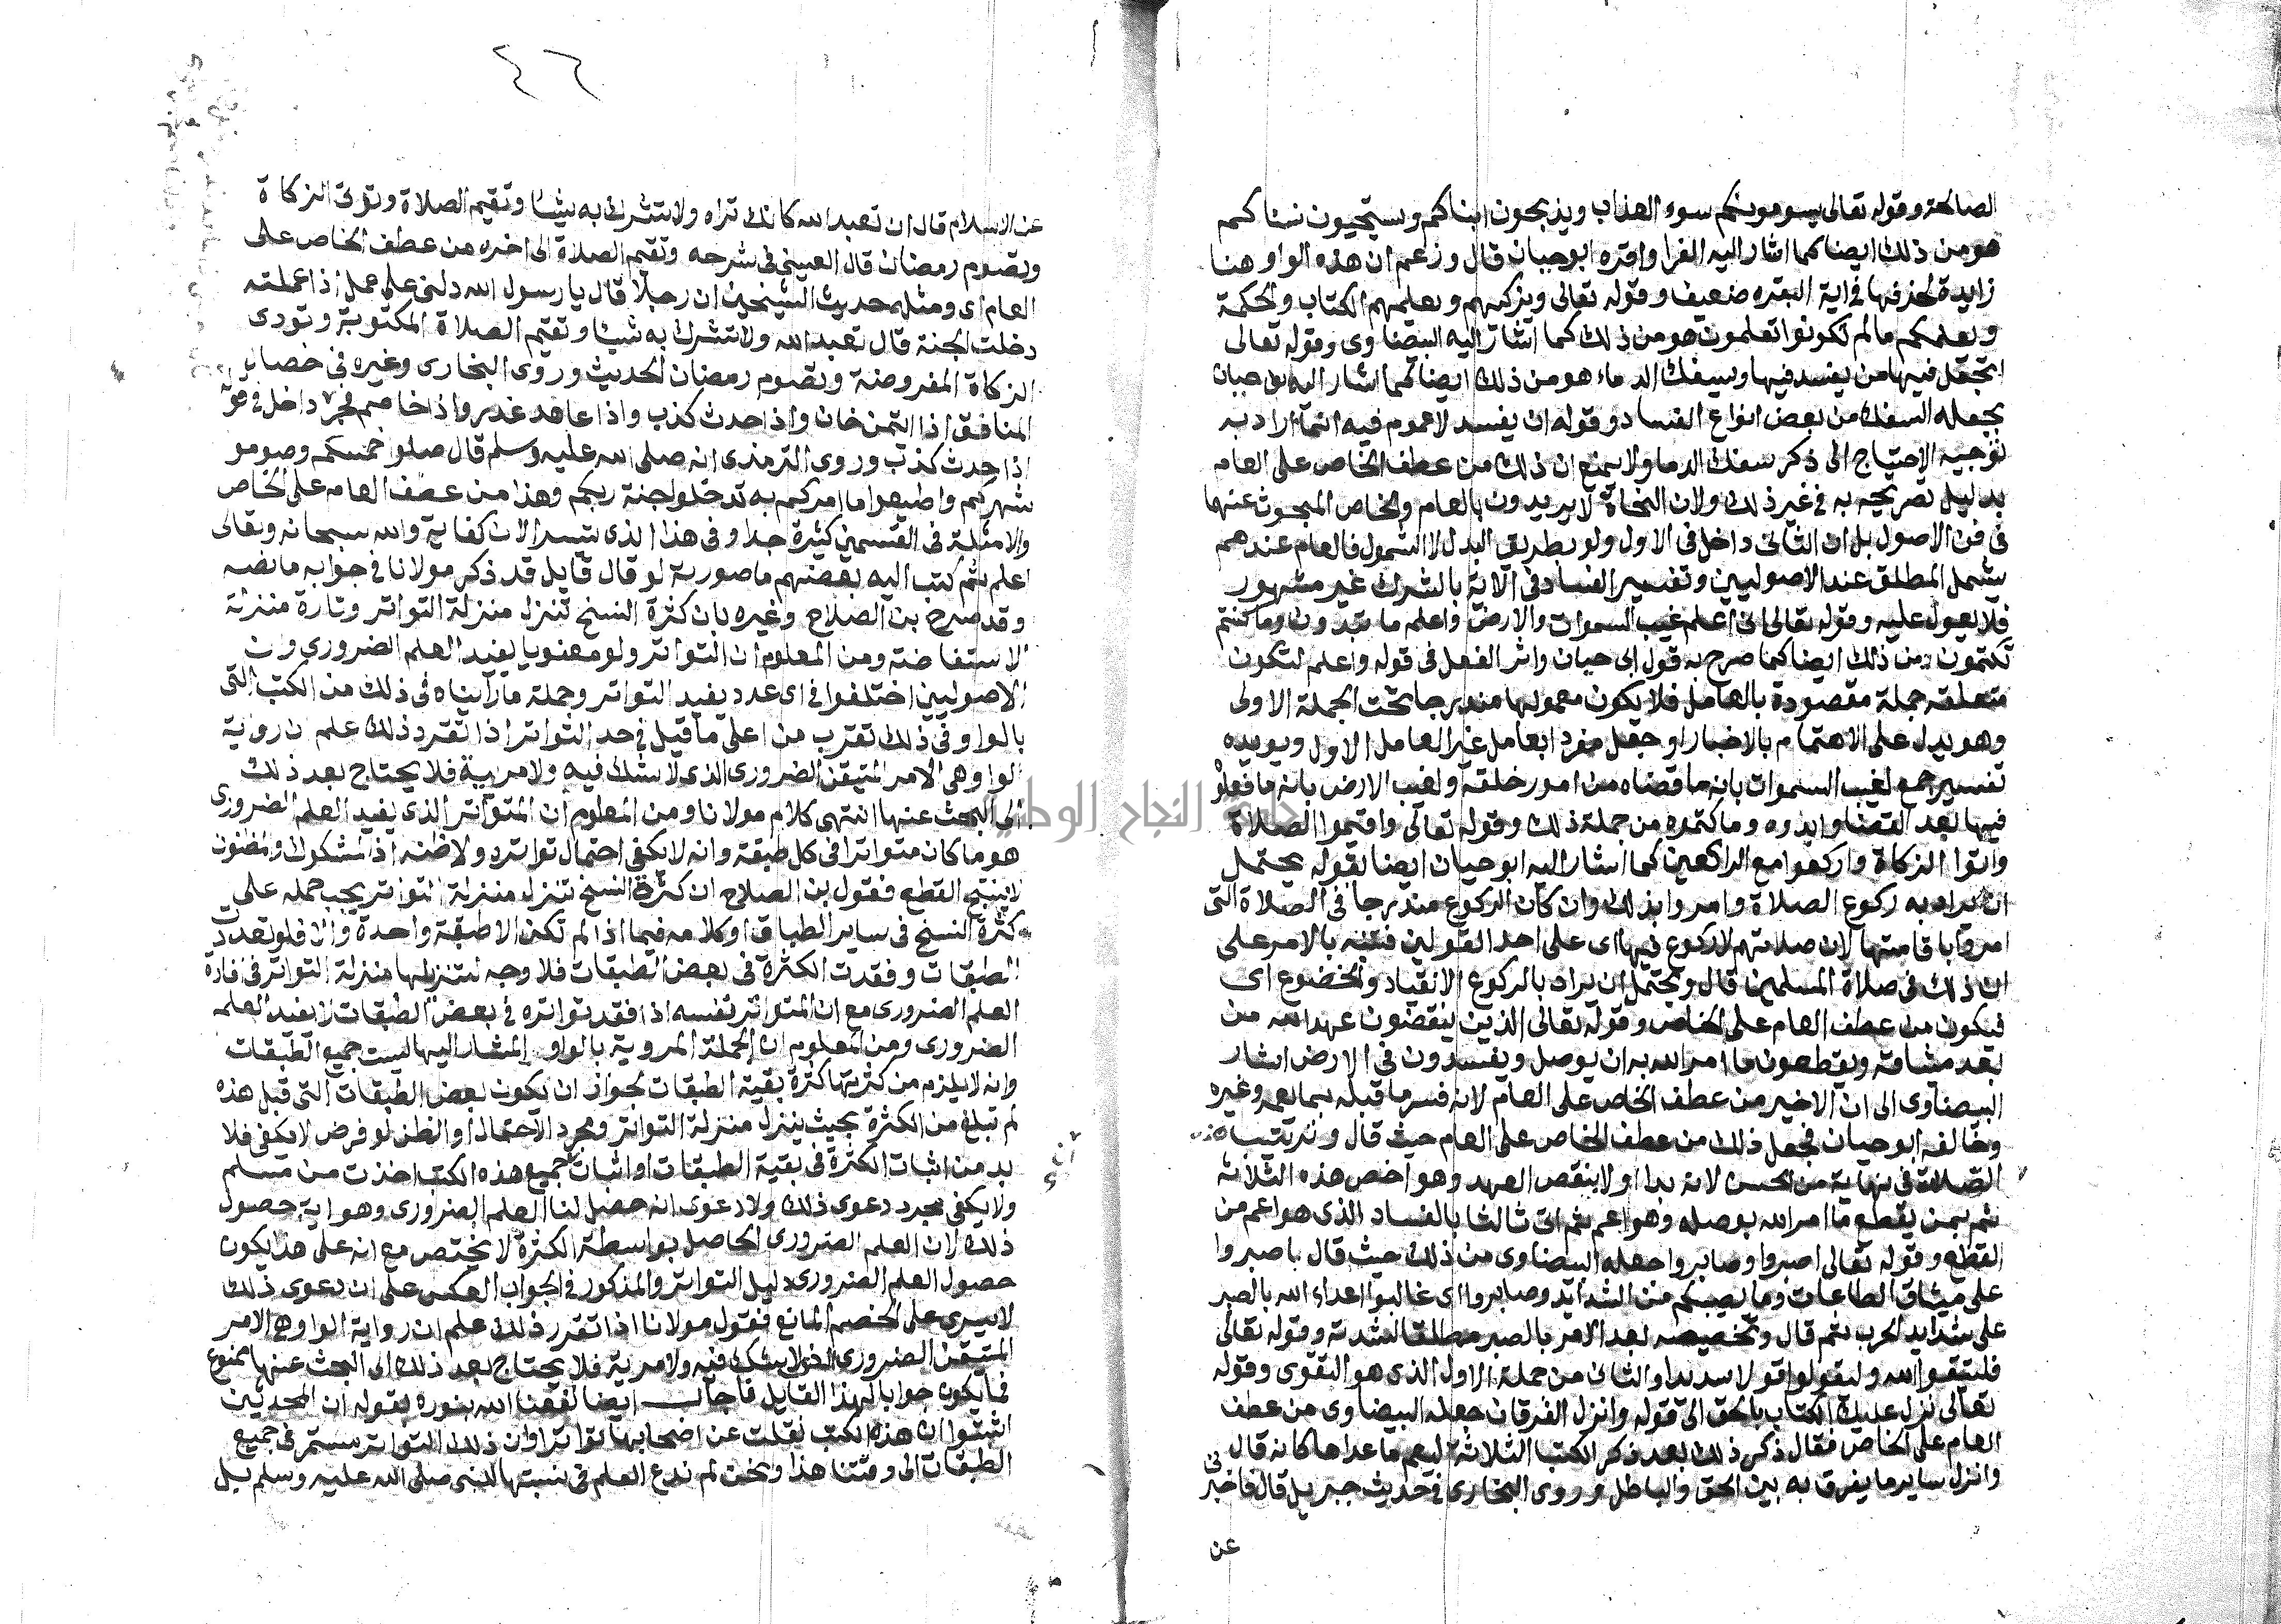 الصالحة وقوله تعالى يسومونكم سوء العذاب ويذبحون ابناكم ويستحيون نساكم
هو من ذلك ايضا كما اشار اليه الفرا واقره ابو حيان قال وزعم ان هذه الواو هنا
زايدة لحذفها في اية البقره ضعيف وقوله تعالى ويزكيهم ويعلمهم الكتاب والحكمة
ويعلمكم مالم تكونوا تعلمون هو من ذلك كما اشار اليه البيضاوى وقوله تعالى
اتجعل فيها من يفسد فيها ويسفك الدماء هو من ذلك ايضا كما اشار اليه بن حيان
بجعله السفك من بعض انواع الفساد وقوله ان يفسد لا عموم فيه انما اراد به
توجيه الاحتياج الى ذكر سفك الدما ولا يمنع ان ذلك من عطف الخاص على العام
بدليل تصريحه به في غير ذلك ولان النحاة لا يريدون بالعام والخاص المبحوث عنها
في فن الاصول بل ان الثانى داخل في الاول ولو بطريق البدل لا الشمول فالعام عندهم
يشمل المطلق عند الاصوليين وتفسير الفساد في الاية بالشرك غير مشهور
فلا يعول عليه وقوله تعالى انى اعلم غيب السموات والارض واعلم ما تبدون وما كنتم
تكتمون من ذلك ايضا كما صرح به قول ابى حيان واثر الفعل في قوله واعلم لتكون
متعلقه جملة مقصودة بالعامل فلا يكون معمولها مندرجا تحت الجملة الاولى
وهو يدل على الاهتمام بالاخبار او جعل مفردا بعامل غير العامل الاول ويويده
تفسير جمع لغيب السموات بانه ما قضاه من امور خلقه ولغيب الارض بانه ما فعلوه
فيها بعد القضا وابدوه وما كتموه من جملة ذلك وقوله تعالى واقيموا الصلاة
واتوا الزكاة واركعوا مع الراكعين كما اشار اليه ابو حيان ايضا بقوله يحتمل
ان يراد به ركوع الصلاة وامروا بذلك وان كان الركوع مندرجا في الصلاة التى
امروا باقامتها لان صلاتهم لا ركوع فيها اى على احد القولين فنبه بالامر على
ان ذلك في صلاة المسلمين قال ويحتمل ان يراد بالركوع الانقياد والخضوع اى
فيكون من عطف العام على الخاص وقوله تعالى الذين ينقضون عهد الله من
بعد ميثاقه ويقطعون ما امر الله به ان يوصل ويفسدون في الارض اشار
البيضاوى الى ان الاخير من عطف الخاص على العام لانه فسر ما قبله بما يعمه وغيره
وخالفه ابو حيان فجعل ذلك من عطف الخاص على العام حيث قال وترتيب هذه
الصلاة في نهاية من الحسن لانه بدا اولا بنقض العهد وهو اخص هذه الثلاثة
ثم بمن يقطع ما امر الله بوصله وهو اعم ثم اتى ثالثا بالفساد الذى هو اعم من
القطع وقوله تعالى اصبروا وصابروا جعله البيضاوى من ذلك حيث قال باصبروا
على ميثاق الطاعات وما يصيبكم من الشدايد وصابروا اى غالبوا اعداء الله بالصبر
على شدايد الحرب ثم قال وتخصيصه بعد الامر بالصبر مطلقا لشدته وقوله تعالى
فليتقوا الله وليقولوا قولا سديدا والثانى من جملة الاول الذى هو التقوى وقوله
تعالى نزل عليك الكتاب بالحق الى قوله وانزل الفرقان جعله البيضاوى من عطف
العام على الخاص فقال ذكر ذلك بعد ذكر الكتب الثلاثة ليعم ما عداها كانه قال
وانزل ساير ما يفرق به بين الحق والباطل وروى البخارى في حديث جبريل قال فاخبرنى
عن
٤٦
عن الاسلام قال ان تعبد الله كانك تراه ولا تشرك به شيئا وتقيم الصلاة وتوتى الزكاة
وتصوم رمضان قال العينى في شرحه وتقيم الصلاة الى اخره من عطف الخاص على
العام اى ومثله حديث الشيخين ان رجلا قال يا رسول الله دلنى على عمل اذا عملته
دخلت الجنة قال تعبد الله ولا تشرك به شيا وتقيم الصلاة المكتوبة وتودى
الزكاة المفروضة وتصوم رمضان الحديث وروى البخارى وغيره في خصال
المنافق اذا اتمن خان واذا حدث كذب واذا عاهد غدر واذا خاصم فجر داخل في قوله
اذا حدث كذب وروى الترمذى انه صلى الله عليه وسلم قال صلوا خمسكم وصوموا
شهركم واطيعوا ما امركم به تدخلوا جنة ربكم وهذا من عطف العام على الخاص
والامثلة في القسمين كثيرة جدا وفى هذا الذى تيسر الان كفاية والله سبحانه وتعالى
اعلم ثم كتب اليه بعضهم ما صورته لو قال قايل قد ذكر مولانا في جوابه ما نصه
وقد صرح بن الصلاح وغيره بان كثرة النسخ تنزل منزلة التواتر وتارة منزلة
الاستفاضة ومن المعلوم ان التواتر ولو معنويا يفيد العلم الضرورى وان
الاصوليين اختلفوا في اى عدد يفيد التواتر وجملة ما رايناه في ذلك من الكتب التى
بالواو في ذلك تقرب من اعلى ما قيل في حد التواتر اذا تقرر ذلك علم ان رواية
الواو هى الامر المتيقن الضرورى الذى لا شك فيه ولا مرية فلا يحتاج بعد ذلك
الى البحث عنها انتهى كلام مولانا ومن المعلوم ان المتواتر الذى يفيد العلم الضرورى
هو ما كان متواترا في كل طبقة وانه لا يكفى احتمال تواتره ولا ظنه اذ المشكوك والمظنون
لا ينتج القطع فقول بن الصلاح ان كثرة النسخ تنزل منزلة التواتر يجب حمله على
كثرة النسخ في ساير الطباق او كلامه فيما اذا لم تكن الا طبقة واحدة والا فلو تعددت
الطبقات وفقدت الكثرة في بعض الطبقات فلا وجه لتنزيلها منزلة التواتر في افادة
العلم الضرورى مع ان المتواتر نفسه اذا فقد تواتره في بعض الطبقات لا يفيد العلم
الضرورى ومن المعلوم ان الجملة المروية بالواو المشار اليها ليست جميع الطبقات
وانه لا يلزم من كثرتها كثرة بقية الطبقات لجواز ان يكون بعض الطبقات التى قبل هذه
لم تبلغ من الكثرة بحيث ينزل منزلة التواتر ومجرد الاحتمال او الظن لو فرض لا يكفى فلا
بد من اثبات الكثرة في بقية الطبقات او اثبات ان جميع هذه الكتب اخذت من مسلم
ولا يكفى مجرد دعوى ذلك ولا دعوى انه حصل لنا العلم الضرورى وهو اية حصول
ذلك لان العلم الضرورى الحاصل بواسطة الكثرة لا يختص مع انه على هذا يكون
حصول العلم الضرورى دليل التواتر والمذكور في الجواب العكس على ان دعوى ذلك
لا يسرى على الخصم المانع فقول مولانا اذا تقرر ذلك علم ان رواية الواو هى الامر
المتيقن الضرورى الذى لا يشك فيه ولا مرية فلا يحتاج بعد ذلك الى البحث عنها ممنوع
فما يكون جوابا لهذا القايل فاجاب ايضا نفعنا الله بنوره بقوله ان المحدثين
اثبتوا ان هذه الكتب نقلت عن اصحابها تواترا وان ذلك التواتر مستمر في جميع
الطبقات الى وقتنا هذا ونحن لم ندع العلم في نسبتها للنبى صلى الله عليه وسلم بل
جامعة النجاح الوطنية